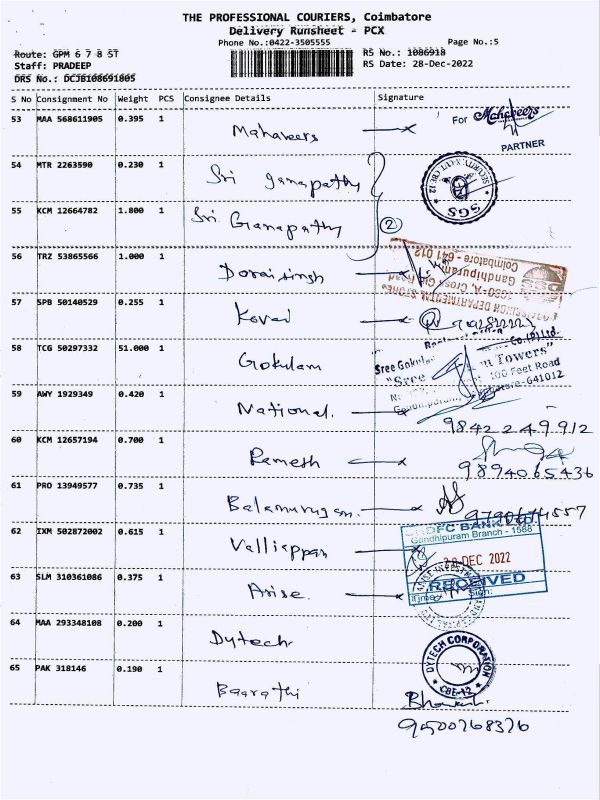 THE PROFESSIONAL COURIERS, Coimbatore
Delivery Runsheet - PCX
Phone No.:0422-3505555
Page No.:5
Route: GPM 6 7 8 ST
RS No.: 1086918
Staff: PRADEEP
RS Date: 28-Dec-2022
DRS No.: DCJB108691805
S No Consignment No Weight PCS Consignee Details Signature
53 MAA 568611905 0.395 1 Mahaveers For Mahaveers
PARTNER
54 MTR 2263590 0.230 1 Sri Ganapathy
SGS
55 KCM 12664782 1.800 1 Sri Ganapathy 2
56 TRZ 53865566 1.000 1 Doraisingh
DEPARTMENTAL STORES
Cross Cut Road
Gandhipuram,
Coimbatore - 641 012
57 SPB 50140529 0.255 1 Kovai
58 TCG 50297332 51.000 1 Gokulam
Sree Gokul Co.(P)Ltd.
"Sree Towers"
100 Feet Road
-641012
59 AWY 1929349 0.420 1 National
98422 49912
60 KCM 12657194 0.700 1 Ramesh
9894065436
61 PRO 13949577 0.735 1 Balamurugan
62 IXM 502872002 0.615 1 Valliappan
HDFC BANK LTD.
Gandhipuram Branch - 1588
28 DEC 2022
RECEIVED
Time: Sign:
63 SLM 310361086 0.375 1 Arise
64 MAA 293348108 0.200 1 Dytech
DYTECH CORPORATION
CBE-12
65 PAK 318146 0.190 1 Baarathi
9500768376